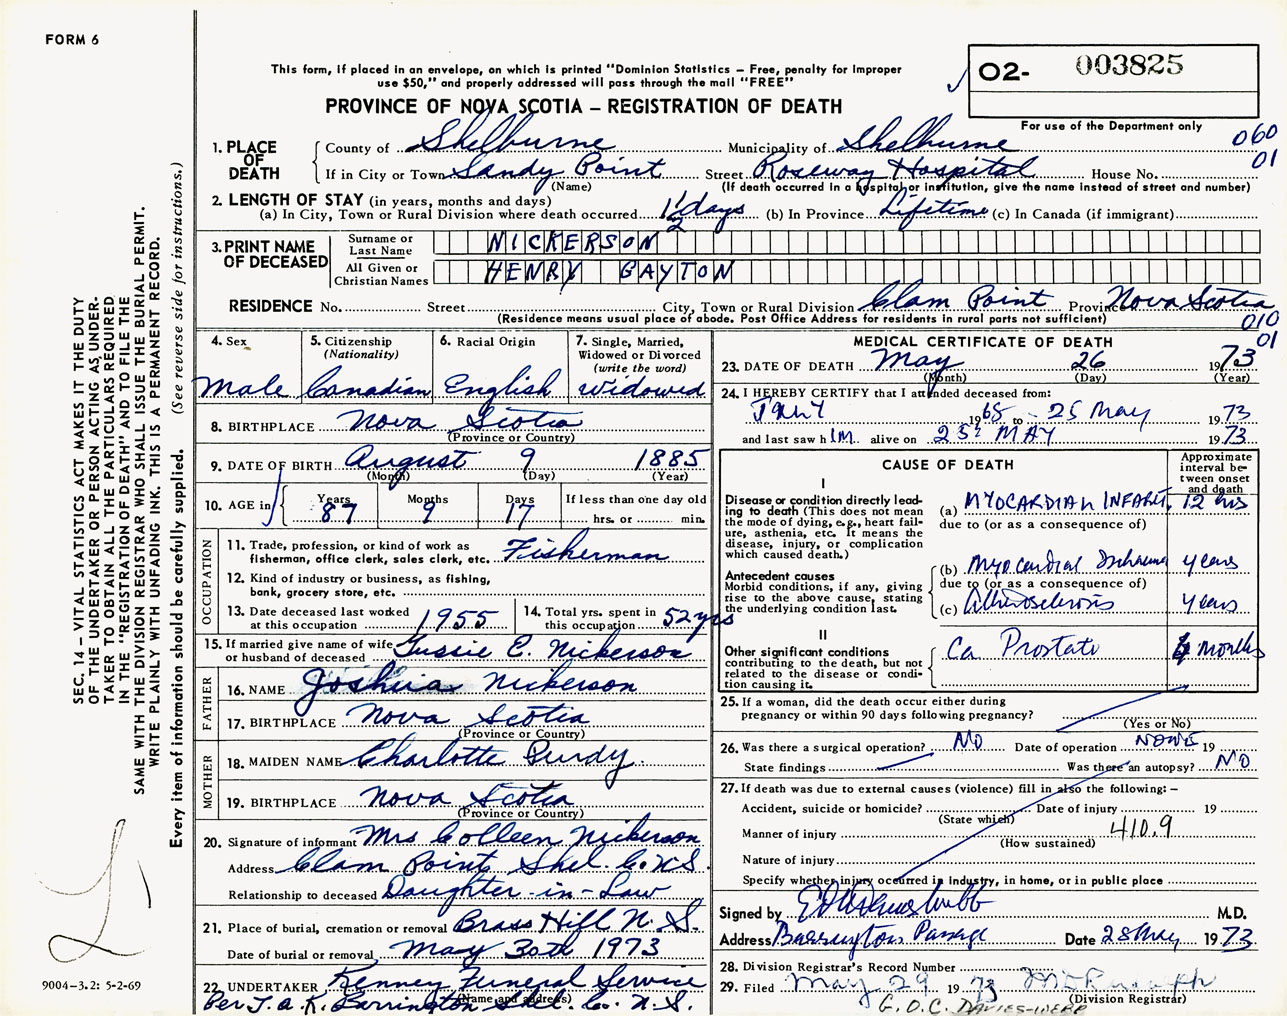 FORM 6
This form, if placed in an envelope, on which is printed "Dominion Statistics – Free, penalty for improper
use $50," and properly addressed will pass through the mail "FREE"
PROVINCE OF NOVA SCOTIA – REGISTRATION OF DEATH
O2- 003825
For use of the Department only
060
01
1. PLACE OF DEATH
County of Shelburne Municipality of Shelburne
If in City or Town Sandy Point Street Roseway Hospital House No.
(Name) (If death occurred in a hospital or institution, give the name instead of street and number)
2. LENGTH OF STAY (in years, months and days)
(a) In City, Town or Rural Division where death occurred 1½ days (b) In Province Lifetime (c) In Canada (if immigrant)
3. PRINT NAME OF DECEASED
Surname or Last Name NICKERSON
All Given or Christian Names HENRY GAYTON
RESIDENCE No. Street City, Town or Rural Division Clam Point Province Nova Scotia
(Residence means usual place of abode. Post Office Address for residents in rural parts not sufficient)
010
01
4. Sex Male
5. Citizenship (Nationality) Canadian
6. Racial Origin English
7. Single, Married, Widowed or Divorced (write the word) Widowed
8. BIRTHPLACE Nova Scotia
(Province or Country)
9. DATE OF BIRTH August 9 1885
(Month) (Day) (Year)
10. AGE in Years 87 Months 9 Days 17 If less than one day old
hrs. or min.
OCCUPATION
11. Trade, profession, or kind of work as fisherman, office clerk, sales clerk, etc. Fisherman
12. Kind of industry or business, as fishing, bank, grocery store, etc.
13. Date deceased last worked at this occupation 1955
14. Total yrs. spent in this occupation 52 yrs
15. If married give name of wife or husband of deceased Tussie E. Nickerson
FATHER
16. NAME Joshua Nickerson
17. BIRTHPLACE Nova Scotia
(Province or Country)
MOTHER
18. MAIDEN NAME Charlotte Purdy
19. BIRTHPLACE Nova Scotia
(Province or Country)
20. Signature of informant Mrs Colleen Nickerson
Address Clam Point, Shel. Co. N.S.
Relationship to deceased Daughter-in-Law
21. Place of burial, cremation or removal Brass Hill N.S.
Date of burial or removal May 30th 1973
22. UNDERTAKER Kenney Funeral Service
(Name and address)
Per. J.A.K. Barrington Shel. Co. N.S.
MEDICAL CERTIFICATE OF DEATH
23. DATE OF DEATH May 26 1973
(Month) (Day) (Year)
24. I HEREBY CERTIFY that I attended deceased from:
1968 to 25 May 1973
and last saw h IM alive on 25th MAY 1973
CAUSE OF DEATH
Approximate interval between onset and death
I
Disease or condition directly leading to death (This does not mean the mode of dying, e.g., heart failure, asthenia, etc. It means the disease, injury, or complication which caused death.)
(a) MYOCARDIAL INFARCT 12 hrs
due to (or as a consequence of)
Antecedent causes
Morbid conditions, if any, giving rise to the above cause, stating the underlying condition last.
(b) Myocardial Ischaemia years
due to (or as a consequence of)
(c) Atherosclerosis years
II
Other significant conditions contributing to the death, but not related to the disease or condition causing it.
Ca Prostate 6 months
25. If a woman, did the death occur either during pregnancy or within 90 days following pregnancy?
(Yes or No)
26. Was there a surgical operation? NO Date of operation NONE 19
State findings Was there an autopsy? NO
27. If death was due to external causes (violence) fill in also the following: –
Accident, suicide or homicide? Date of injury 19
(State which)
Manner of injury 410.9
(How sustained)
Nature of injury
Specify whether injury occurred in industry, in home, or in public place
Signed by M.D.
Address Barrington Passage Date 28 May 1973
28. Division Registrar's Record Number
29. Filed May 29 1973
(Division Registrar)
G. D. C. DAVIES-WEBB
SEC. 14 – VITAL STATISTICS ACT MAKES IT THE DUTY
OF THE UNDERTAKER OR PERSON ACTING AS UNDER-
TAKER TO OBTAIN ALL THE PARTICULARS REQUIRED
IN THE "REGISTRATION OF DEATH" AND TO FILE THE
SAME WITH THE DIVISION REGISTRAR WHO SHALL ISSUE THE BURIAL PERMIT.
WRITE PLAINLY WITH UNFADING INK. THIS IS A PERMANENT RECORD.
Every item of information should be carefully supplied. (See reverse side for instructions.)
9004-3.2: 5-2-69